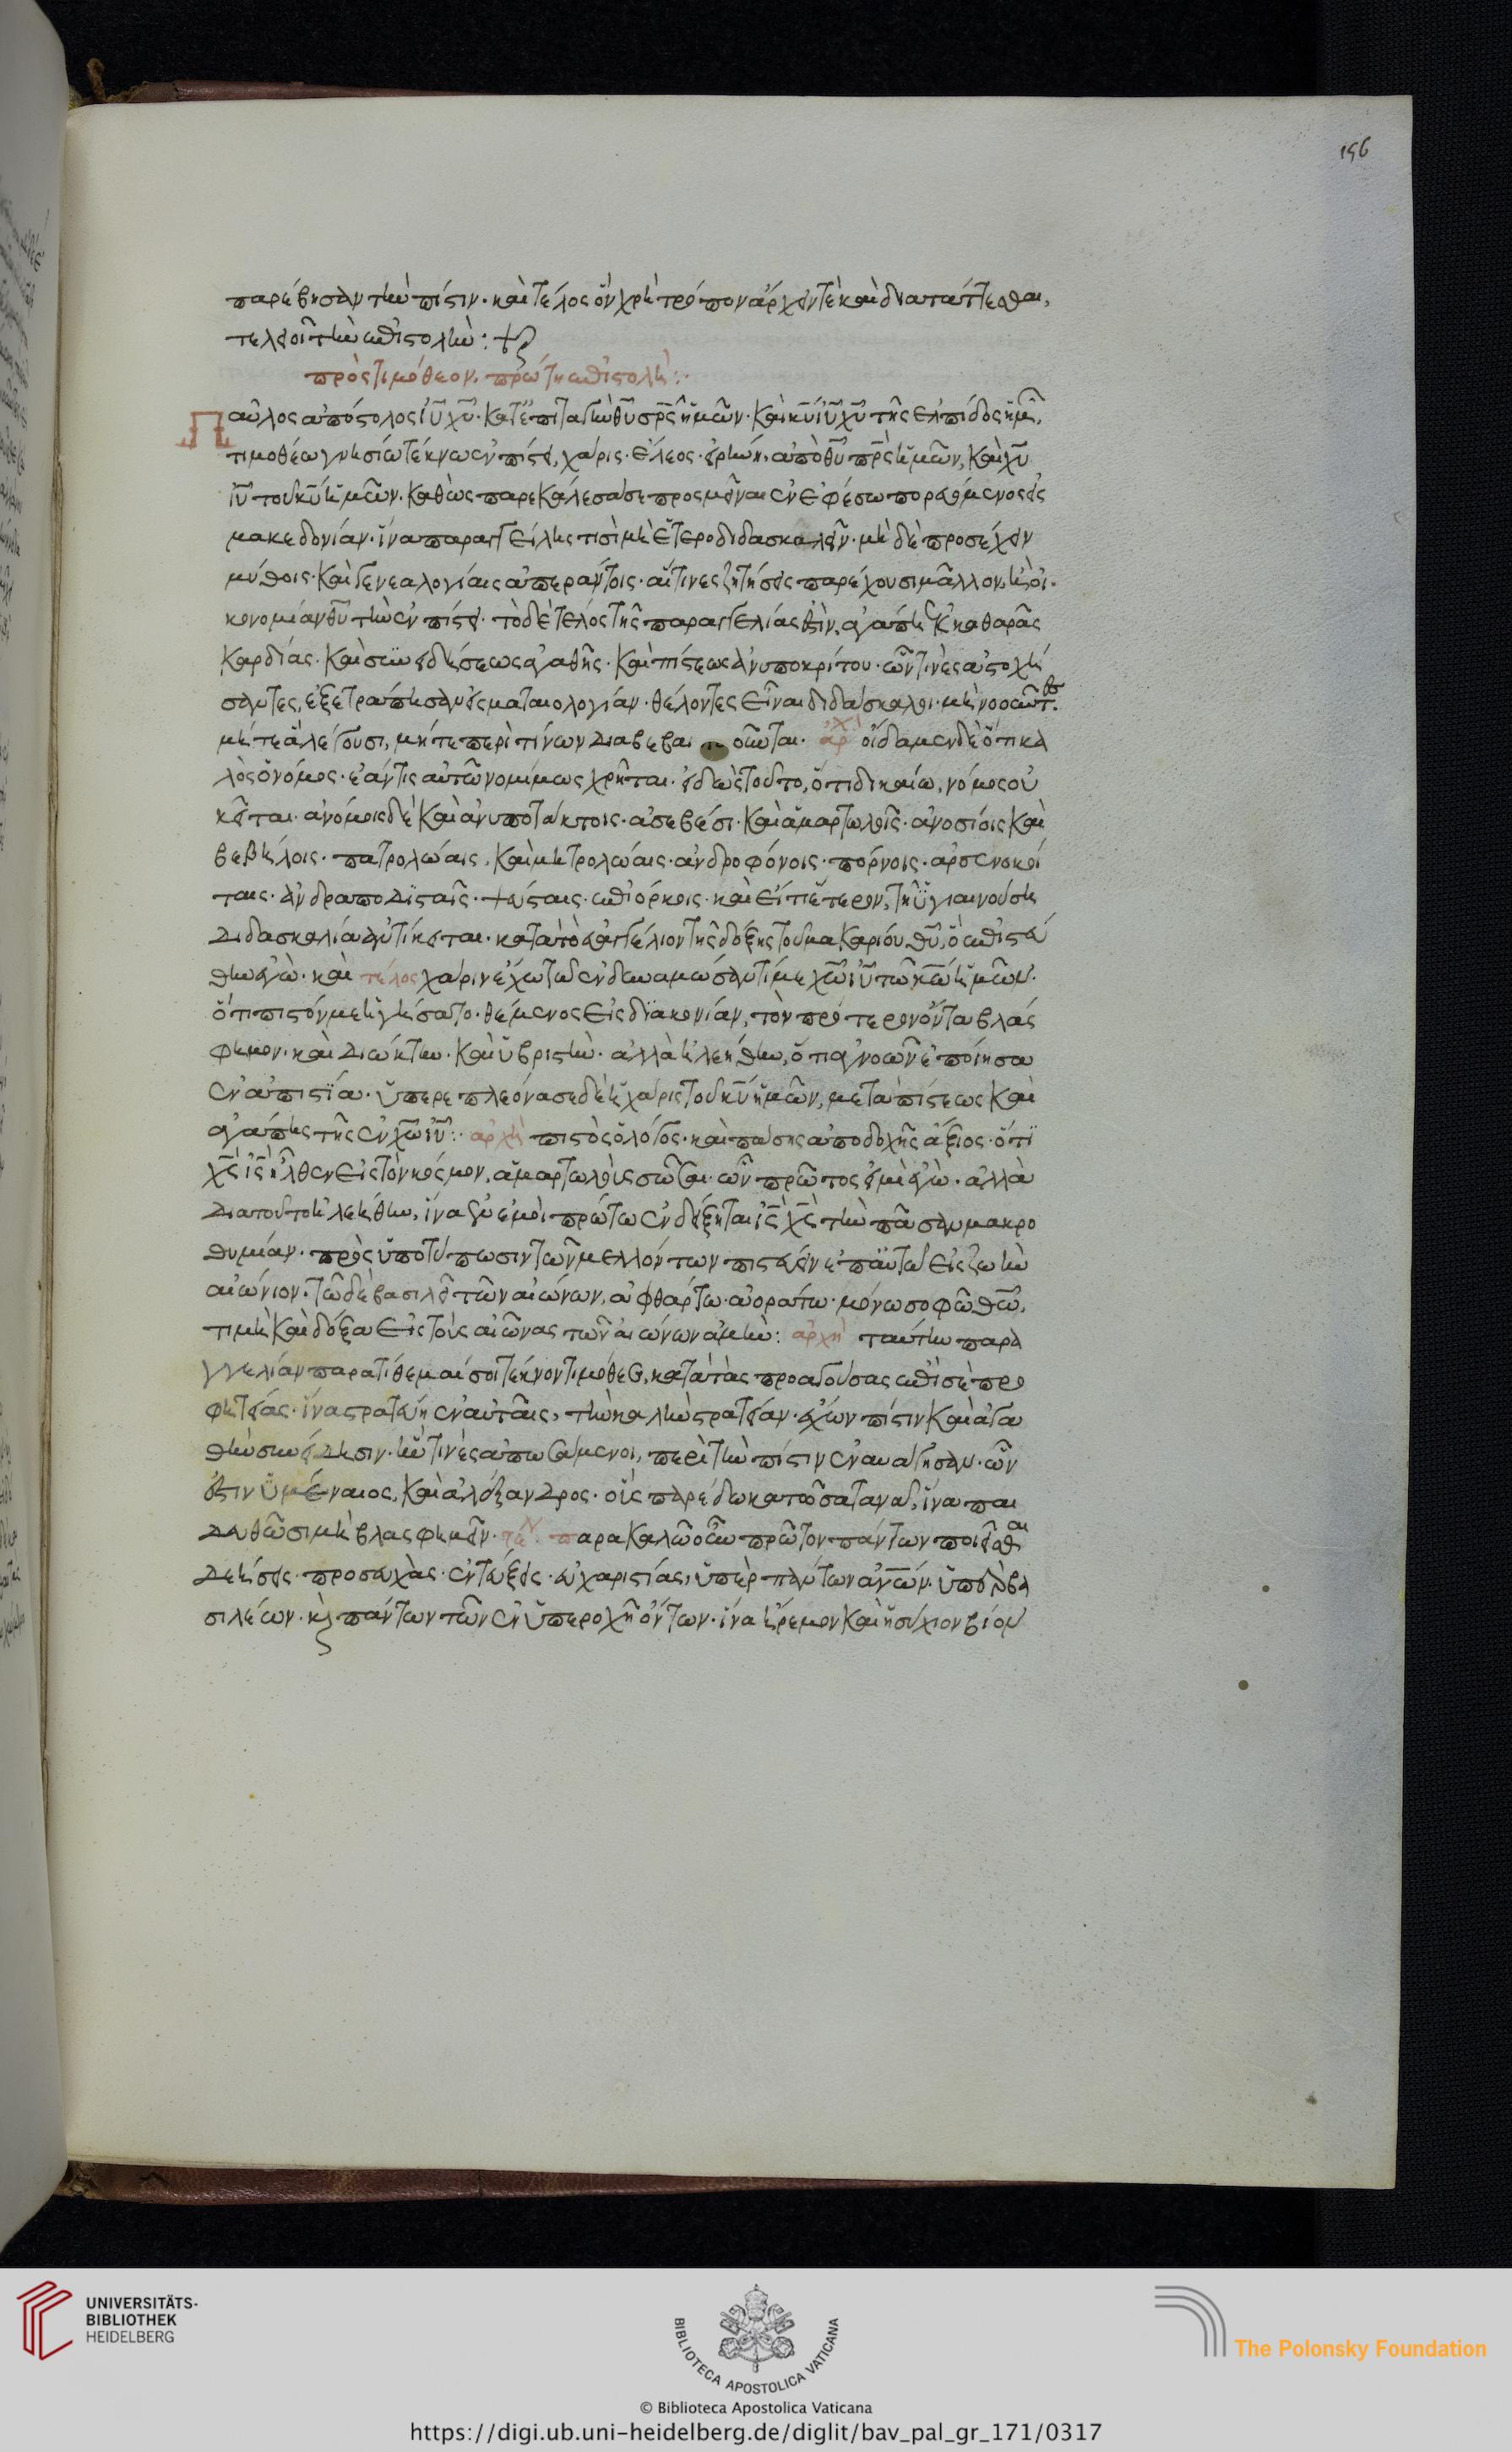 156
παρέβησαν τὴν πίστιν· καὶ τέλος ὃν χρὴ τρόπον ἄρχειν τὲ καὶ διατάττεσθαι,
τελειοῖ τὴν ἐπιστολήν:
πρὸς τιμόθεον, πρώτη ἐπιστολή:·
Παῦλος ἀπόστολος ἰῦ χῦ· κατ' ἐπιταγὴν θῦ σρ̅ς ἡμῶν· καὶ κῦ ἰῦ χῦ τῆς ἐλπίδος ἡμῶν,
τιμοθέω γνησίω τέκνω ἐν πίστει, χάρις· ἔλεος· εἰρήνη· ἀπὸ θῦ πρ̅ς ἡμῶν, καὶ χῦ
ἰῦ τοῦ κῦ ἡμῶν· καθὼς παρεκάλεσά σε προσμεῖναι ἐν ἐφέσω πορευόμενος εἰς
μακεδονίαν· ἵνα παραγγείλης τισὶ μὴ ἑτεροδιδασκαλεῖν· μὴ δὲ προσέχειν
μύθοις· καὶ γενεαλογίαις ἀπεράντοις· αἵτινες ζητήσεις παρέχουσι μᾶλλον, ἢ οἰ
κονομίαν θῦ τὴν ἐν πίστει· τὸ δὲ τέλος τῆς παραγγελίας ἐστὶν, ἀγάπη ἐκ καθαρᾶς
καρδίας· καὶ συνειδήσεως ἀγαθῆς· καὶ πίστεως ἀνυποκρίτου· ὧν τινὲς ἀστοχή
σαντες, ἐξετράπησαν εἰς ματαιολογίαν· θέλοντες εἶναι διδάσκαλοι· μὴ νοοῦντες
μήτε ἃ λέγουσι, μήτε περὶ τίνων διαβεβαιοῦνται· ἀρχ οἴδαμεν δὲ ὅτι κα
λὸς ὁ νόμος· ἐάν τις αὐτῶ νομίμως χρῆται· εἰδὼς τοῦτο, ὅτι δικαίω, νόμος οὐ
κεῖται· ἀνόμοις δὲ καὶ ἀνυποτάκτοις· ἀσεβέσι· καὶ ἁμαρτωλοῖς· ἀνοσίοις καὶ
βεβήλοις· πατρολώαις, καὶ μητρολώαις· ἀνδροφόνοις· πόρνοις· ἀρσενοκοί
ταις· ἀνδραποδισταῖς· ψεύσταις· ἐπιόρκοις· καὶ εἴ τι ἕτερον, τῆ ὑγιαινούση
διδασκαλία ἀντίκειται· κατὰ τὸ εὐαγγέλιον τῆς δόξης τοῦ μακαρίου θῦ, ὃ ἐπιστεύ
θην ἐγώ· καὶ τέλος χάριν ἔχω τῶ ἐνδυναμώσαντί με χῶ ἰῦ τῶ κῶ ἡμῶν·
ὅτι πιστόν με ἡγήσατο· θέμενος εἰς διακονίαν, τὸν πρότερον ὄντα βλάσ
φημον· καὶ διώκτην· καὶ ὑβριστήν· ἀλλὰ ἠλεήθην, ὅτι ἀγνοῶν ἐποίησα
ἐν ἀπιστία· ὑπερεπλεόνασε δὲ ἡ χάρις τοῦ κῦ ἡμῶν, μετὰ πίστεως καὶ
ἀγάπης τῆς ἐν χῶ ἰῦ:· ἀρχὴ πιστὸς ὁ λόγος· καὶ πάσης ἀποδοχῆς ἄξιος· ὅτι
χς ις ἦλθεν εἰς τὸν κόσμον, ἁμαρτωλοὺς σῶσαι· ὧν πρῶτος εἰμὶ ἐγώ· ἀλλὰ
διατοῦτο ἠλεήθην, ἵνα ἐν ἐμοὶ πρώτω ἐνδείξηται ις χς τὴν πᾶσαν μακρο
θυμίαν· πρὸς ὑποτύπωσιν τῶν μελλόντων πιστεύειν ἐπ' αὐτῶ εἰς ζωὴν
αἰώνιον· τῶ δὲ βασιλεῖ τῶν αἰώνων, ἀφθάρτω· ἀοράτω· μόνω σοφῶ θῶ,
τιμὴ καὶ δόξα εἰς τοὺς αἰῶνας τῶν αἰώνων ἀμήν: ἀρχὴ ταύτην παρα
γγελίαν παρατίθεμαί σοι τέκνον τιμόθεε, κατὰ τὰς προαγούσας ἐπί σε προ
φητείας· ἵνα στρατεύη ἐν αὐταῖς, τὴν καλὴν στρατείαν· ἔχων πίστιν καὶ ἀγα
θὴν συνείδησιν· ἥν τινὲς ἀπωσάμενοι, περὶ τὴν πίστιν ἐναυάγησαν· ὧν
ἐστιν ὑμέναιος, καὶ ἀλέξανδρος· οὓς παρέδωκα τῶ σατανᾶ, ἵνα παι
δευθῶσι μὴ βλασφημεῖν· παρακαλῶ οὖν πρῶτον πάντων ποιεῖσθαι
δεήσεις· προσευχὰς· ἐντεύξεις· εὐχαριστίας, ὑπὲρ πάντων ἀνῶν· ὑπὲρ βα
σιλέων· κ πάντων τῶν ἐν ὑπεροχῆ ὄντων· ἵνα ἤρεμον καὶ ἡσύχιον βίον
UNIVERSITÄTS-
BIBLIOTHEK
HEIDELBERG
BIBLIOTECA APOSTOLICA VATICANA
The Polonsky Foundation
© Biblioteca Apostolica Vaticana
https://digi.ub.uni-heidelberg.de/diglit/bav_pal_gr_171/0317